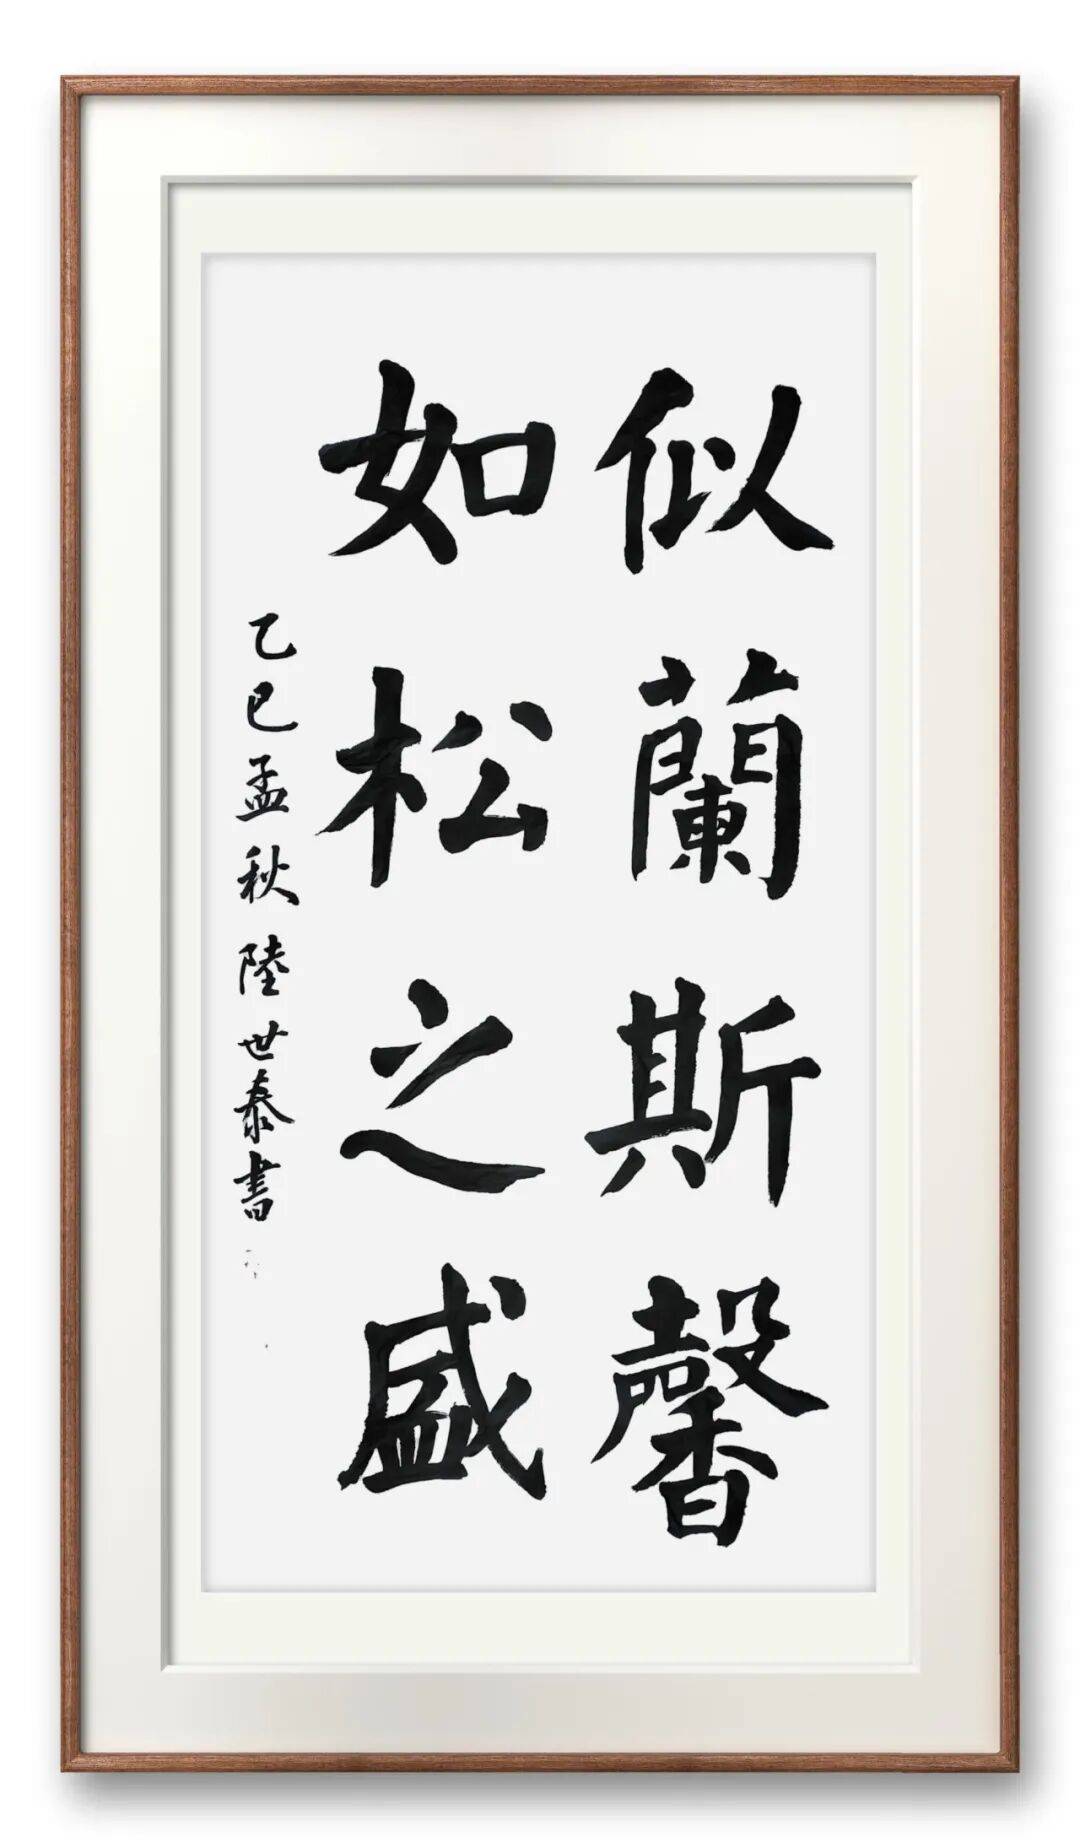 似蘭斯馨
如松之盛
乙巳孟秋陸世泰書